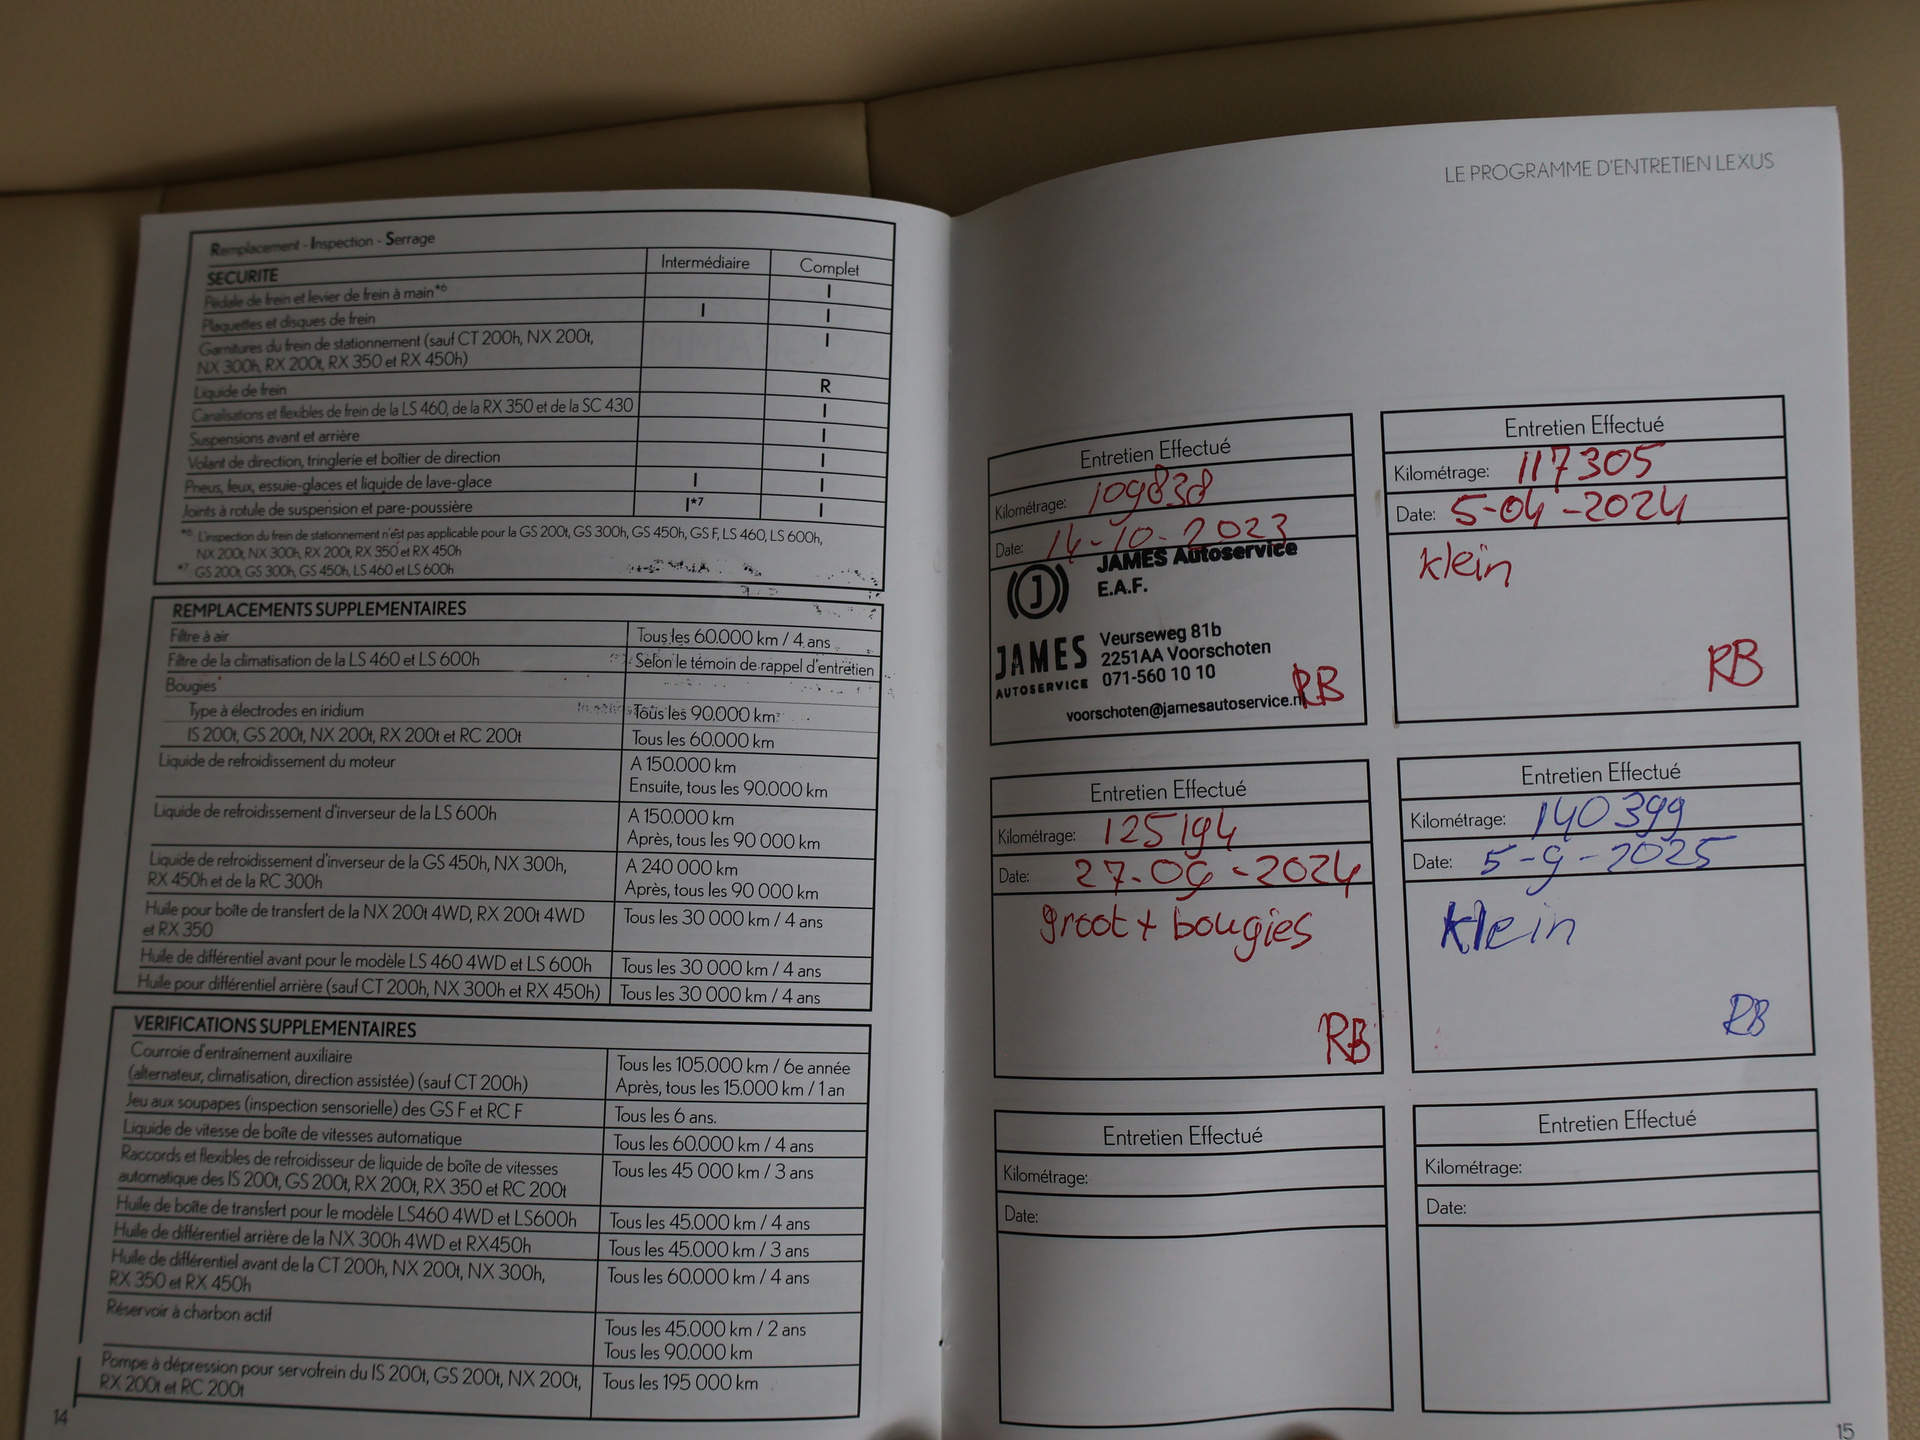 Remplacement - Inspection - Serrage
SECURITE Intermédiaire Complet
Pédale de frein et levier de frein à main*6 I
Plaquettes et disques de frein I I
Garnitures du frein de stationnement (sauf CT 200h, NX 200t,
NX 300h, RX 200t, RX 350 et RX 450h) I
Liquide de frein R
Canalisations et flexibles de frein de la LS 460, de la RX 350 et de la SC 430 I
Suspensions avant et arrière I
Volant de direction, tringlerie et boîtier de direction I
Pneus, feux, essuie-glaces et liquide de lave-glace I I
Joints à rotule de suspension et pare-poussière I*7 I
*6 L'inspection du frein de stationnement n'est pas applicable pour la GS 200t, GS 300h, GS 450h, GS F, LS 460, LS 600h,
NX 200t, NX 300h, RX 200t, RX 350 et RX 450h
*7 GS 200t, GS 300h, GS 450h, LS 460 et LS 600h
REMPLACEMENTS SUPPLEMENTAIRES
Filtre à air Tous les 60.000 km / 4 ans
Filtre de la climatisation de la LS 460 et LS 600h Selon le témoin de rappel d'entretien
Bougies
Type à électrodes en iridium Tous les 90.000 km
IS 200t, GS 200t, NX 200t, RX 200t et RC 200t Tous les 60.000 km
Liquide de refroidissement du moteur A 150.000 km
Ensuite, tous les 90.000 km
Liquide de refroidissement d'inverseur de la LS 600h A 150.000 km
Après, tous les 90 000 km
Liquide de refroidissement d'inverseur de la GS 450h, NX 300h, A 240 000 km
RX 450h et de la RC 300h Après, tous les 90 000 km
Huile pour boîte de transfert de la NX 200t 4WD, RX 200t 4WD Tous les 30 000 km / 4 ans
et RX 350
Huile de différentiel avant pour le modèle LS 460 4WD et LS 600h Tous les 30 000 km / 4 ans
Huile pour différentiel arrière (sauf CT 200h, NX 300h et RX 450h) Tous les 30 000 km / 4 ans
VERIFICATIONS SUPPLEMENTAIRES
Courroie d'entraînement auxiliaire Tous les 105.000 km / 6e année
(alternateur, climatisation, direction assistée) (sauf CT 200h) Après, tous les 15.000 km / 1 an
Jeu aux soupapes (inspection sensorielle) des GS F et RC F Tous les 6 ans.
Liquide de vitesse de boîte de vitesses automatique Tous les 60.000 km / 4 ans
Raccords et flexibles de refroidisseur de liquide de boîte de vitesses Tous les 45 000 km / 3 ans
automatique des IS 200t, GS 200t, RX 200t, RX 350 et RC 200t
Huile de boîte de transfert pour le modèle LS460 4WD et LS600h Tous les 45.000 km / 4 ans
Huile de différentiel arrière de la NX 300h 4WD et RX450h Tous les 45.000 km / 3 ans
Huile de différentiel avant de la CT 200h, NX 200t, NX 300h, Tous les 60.000 km / 4 ans
RX 350 et RX 450h
Réservoir à charbon actif Tous les 45.000 km / 2 ans
Tous les 90.000 km
Pompe à dépression pour servofrein du IS 200t, GS 200t, NX 200t, Tous les 195 000 km
RX 200t et RC 200t
14
LE PROGRAMME D'ENTRETIEN LEXUS
Entretien Effectué
Kilométrage: 109838
Date: 14-10-2023
JAMES Autoservice
E.A.F.
J
JAMES
AUTOSERVICE
Veurseweg 81b
2251AA Voorschoten
071-560 10 10
voorschoten@jamesautoservice.n
RB
Entretien Effectué
Kilométrage: 117305
Date: 5-04-2024
klein
RB
Entretien Effectué
Kilométrage: 125194
Date: 27-09-2024
groot + bougies
RB
Entretien Effectué
Kilométrage: 140399
Date: 5-9-2025
klein
RB
Entretien Effectué
Kilométrage:
Date:
Entretien Effectué
Kilométrage:
Date:
15